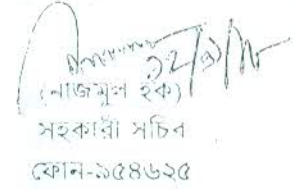 (নাজমুল হক)
সহকারী সচিব
ফোন-৯৫৪৬২৫